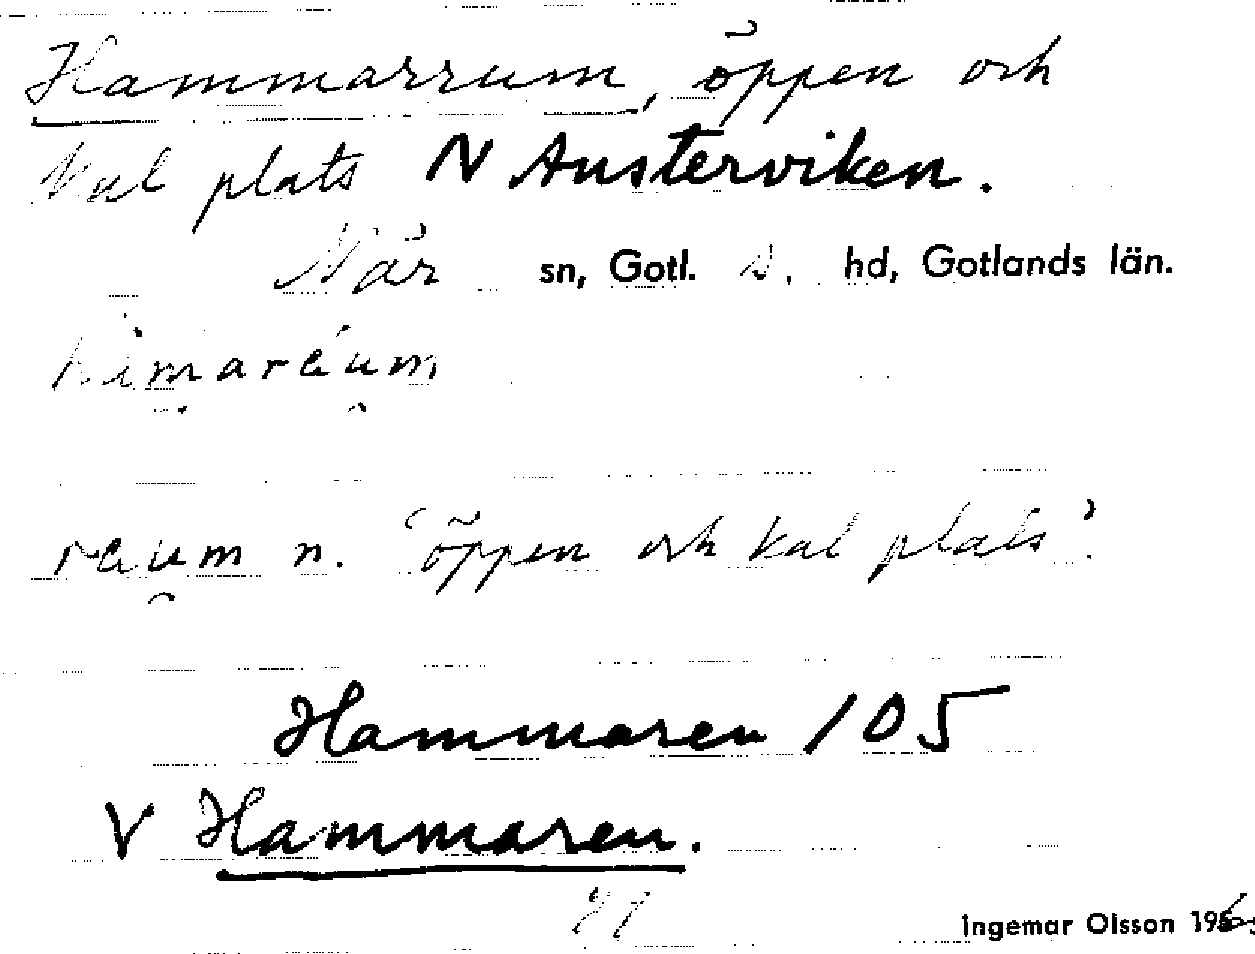 Hammarrum, öppen och
kal plats N Austerviken.
När sn, Gotl. S. hd, Gotlands län.
raum n. 'öppen och kal plats'.
Hammaren 105
V Hammaren.
Ingemar Olsson 196